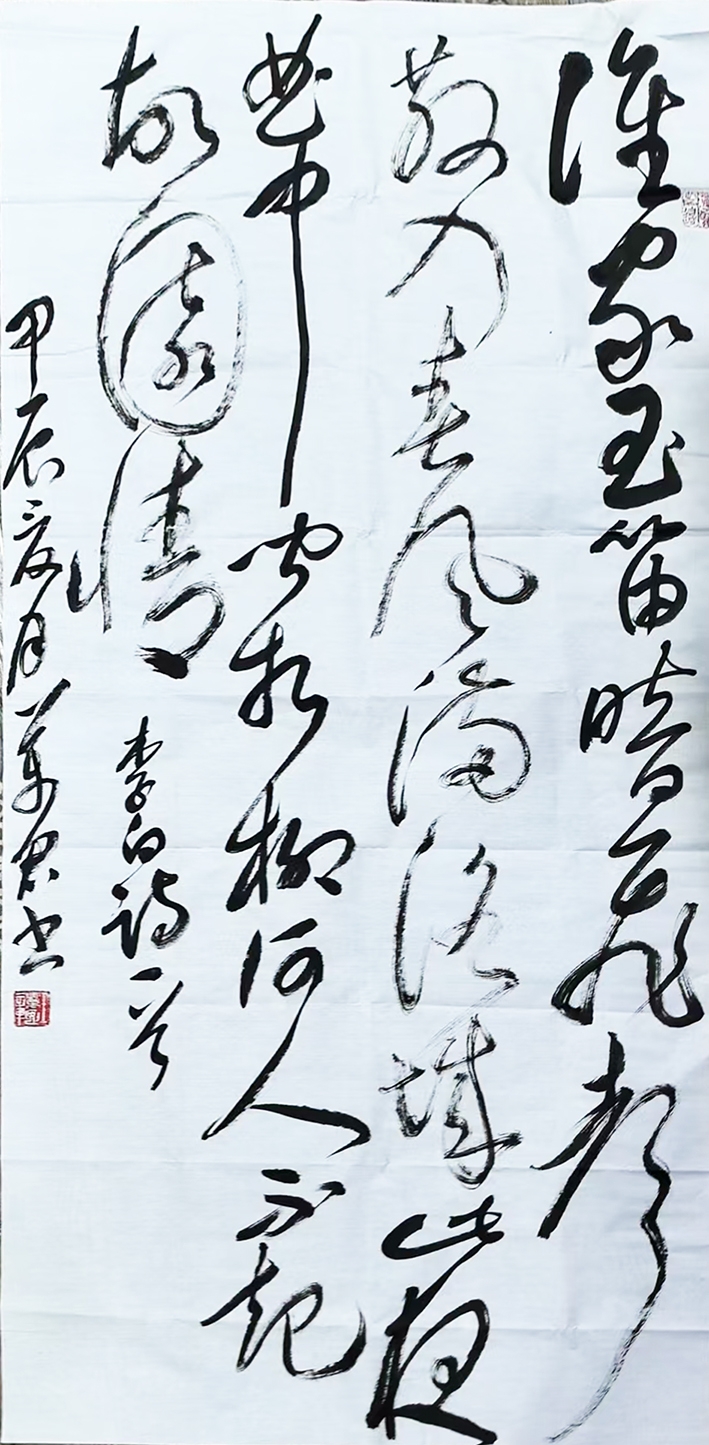 谁家玉笛暗飞声
散入春风满洛城此夜
曲中闻折柳何人不起
故园情 李白诗一首
甲辰夏月 书